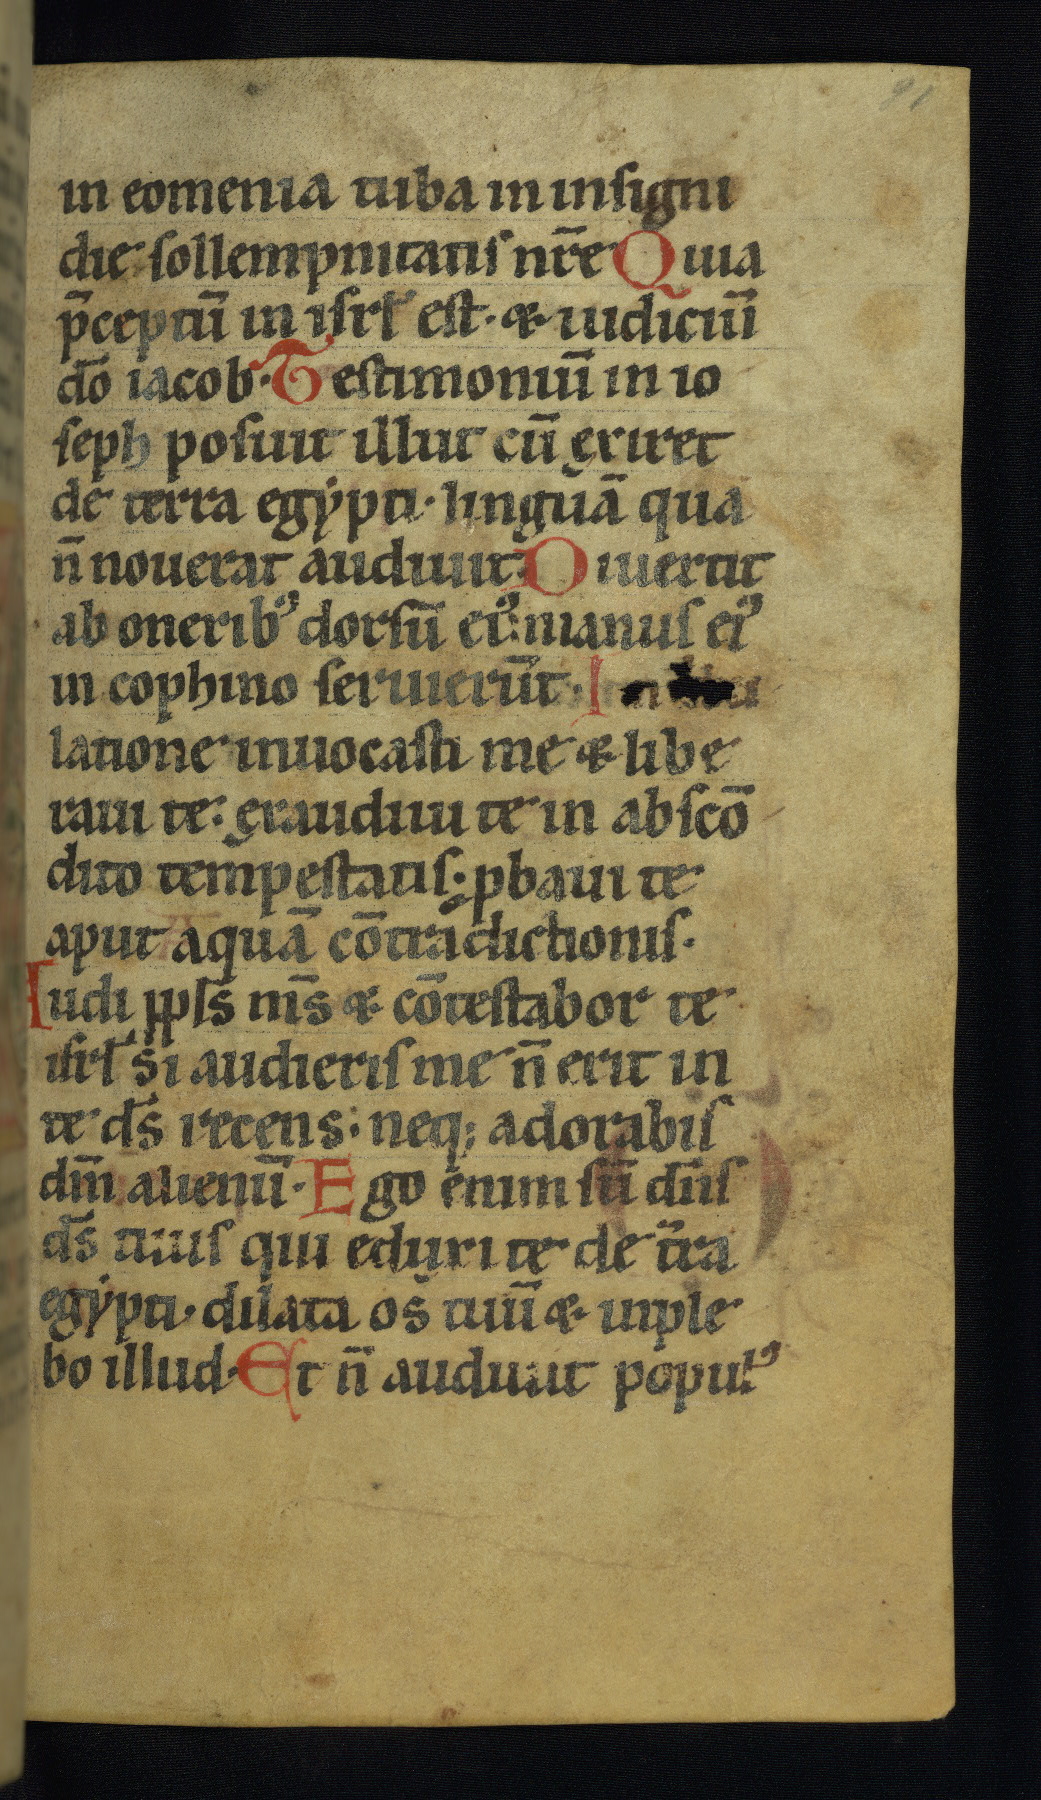 91
in eomenia tuba in insigni
die sollempnitatis nr̄e Quia
p̄ceptū in isrl̄ est· & iudiciū
dō iacob· Testimoniū in io
seph posuit illut cū exiret
de terra egẏpti· linguā qua
n̄ nouerat audiuit· Diuertit
ab onerib᾿ dorsū ei᾿: manus ei᾿
in cophino seruierūt· In
latione inuocasti me & libe
raui te: exaudiui te in abscō
dito tempestatis: ꝓbaui te
aput aquā cōtradictionis·
Audi pp̄ls m̄s & cōtestabor te
isrl̄ si audieris me n̄ erit in
te d̄s recens: neq; adorabis
dm̄ alienū· Ego enim sū dn̄s
d̄s tuus qui eduxi te de t̄ra
egẏpti· dilata os tuū & inple
bo illud· Et n̄ audiuit popul᾿